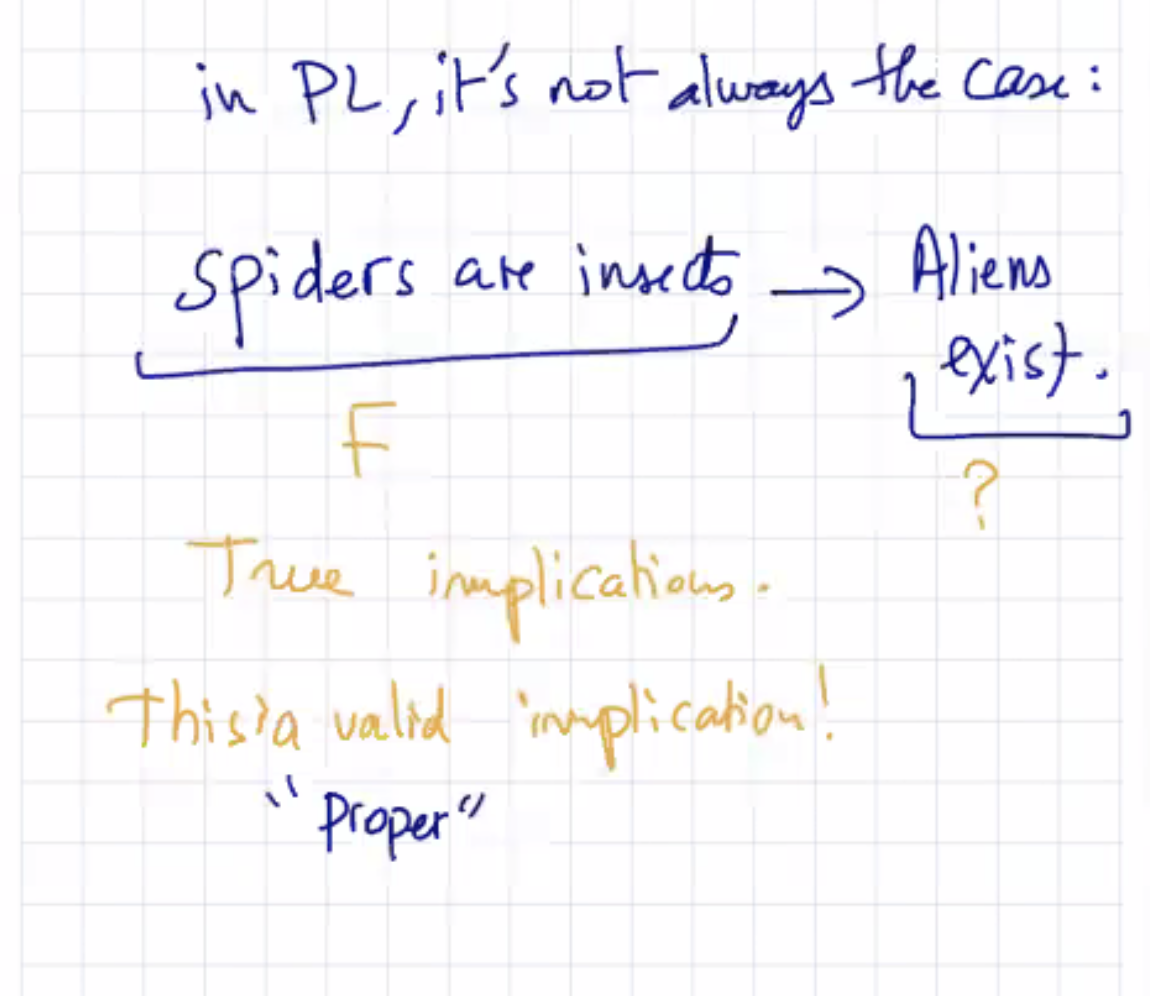 in PL, it's not always the case:
Spiders are insects → Aliens
exist.
F
?
True implications.
This is a valid implication!
"Proper"